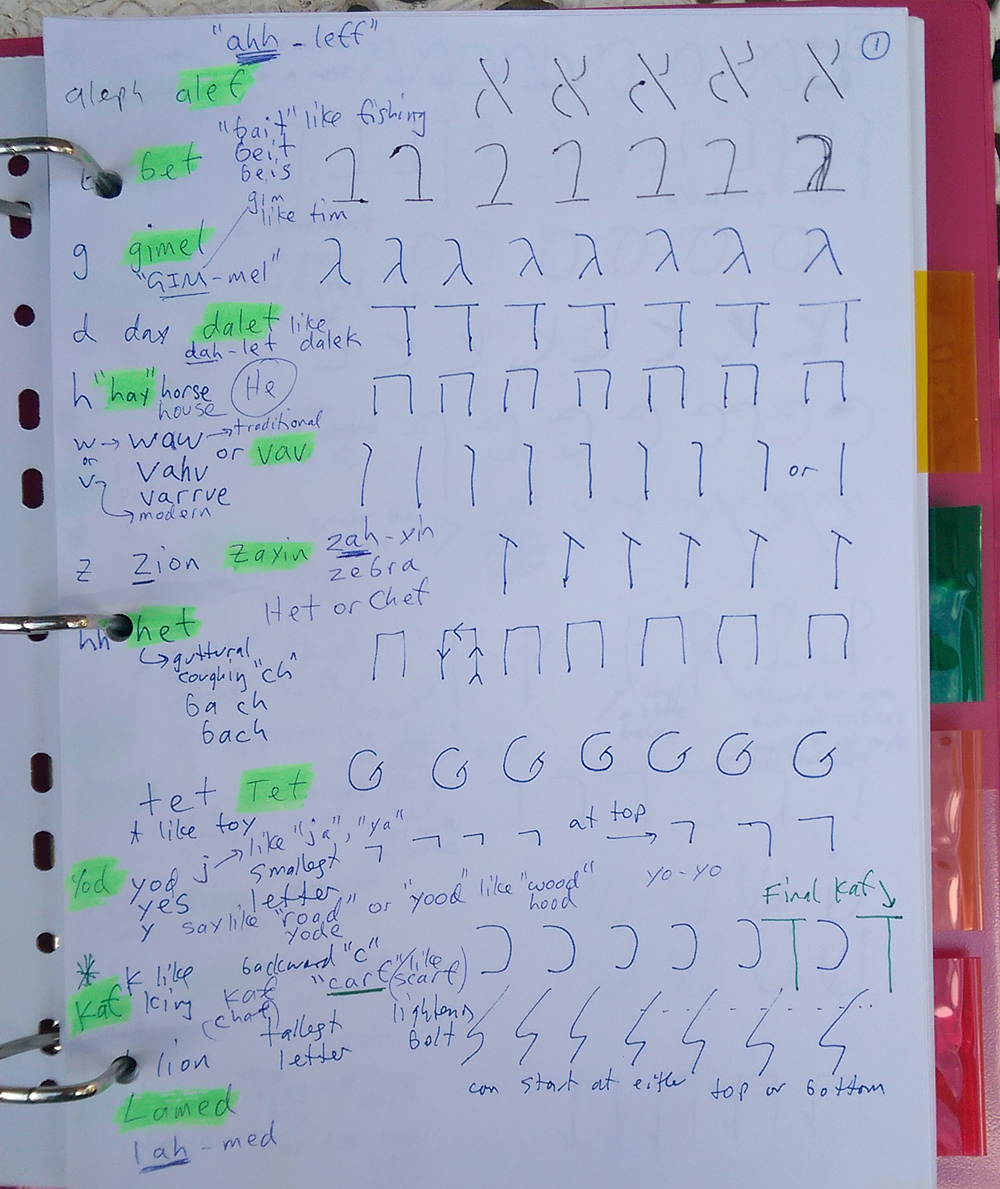 "ahh - leff"
①
aleph alef א א א א א
"bait" like fishing
bet beit ב ב ב ב ב ב ב
beis
gim
like tim
g gimel ג ג ג ג ג ג ג ג
"GIM-mel"
d day dalet like ד ד ד ד ד ד ד
dah-let dalek
h "hay" horse He ה ה ה ה ה ה ה
house
w → waw → traditional
or vahv or vav ו ו ו ו ו ו ו ו or ו
v varrve
modern
z zion zayin zah-yin ז ז ז ז ז ז
zebra
Het or Chet
hh het ח ח ח ח ח ח ח
guttural
coughing "ch"
bach
bach
tet Tet ט ט ט ט ט ט ט
t like toy
Yod yod j → like "ja", "ya" י י י י at top → י י י
yes smallest letter yo-yo
y say like "road" or "yood" like "wood"
yode hood
Final Kaf
* K like backward "c" "carf" (like scarf) כ כ כ כ כ ך כ ך
Kaf king kaf
(chaf)
lion tallest letter lightening bolt ל ל ל ל ל ל ל
can start at either top or bottom
Lamed
lah-med